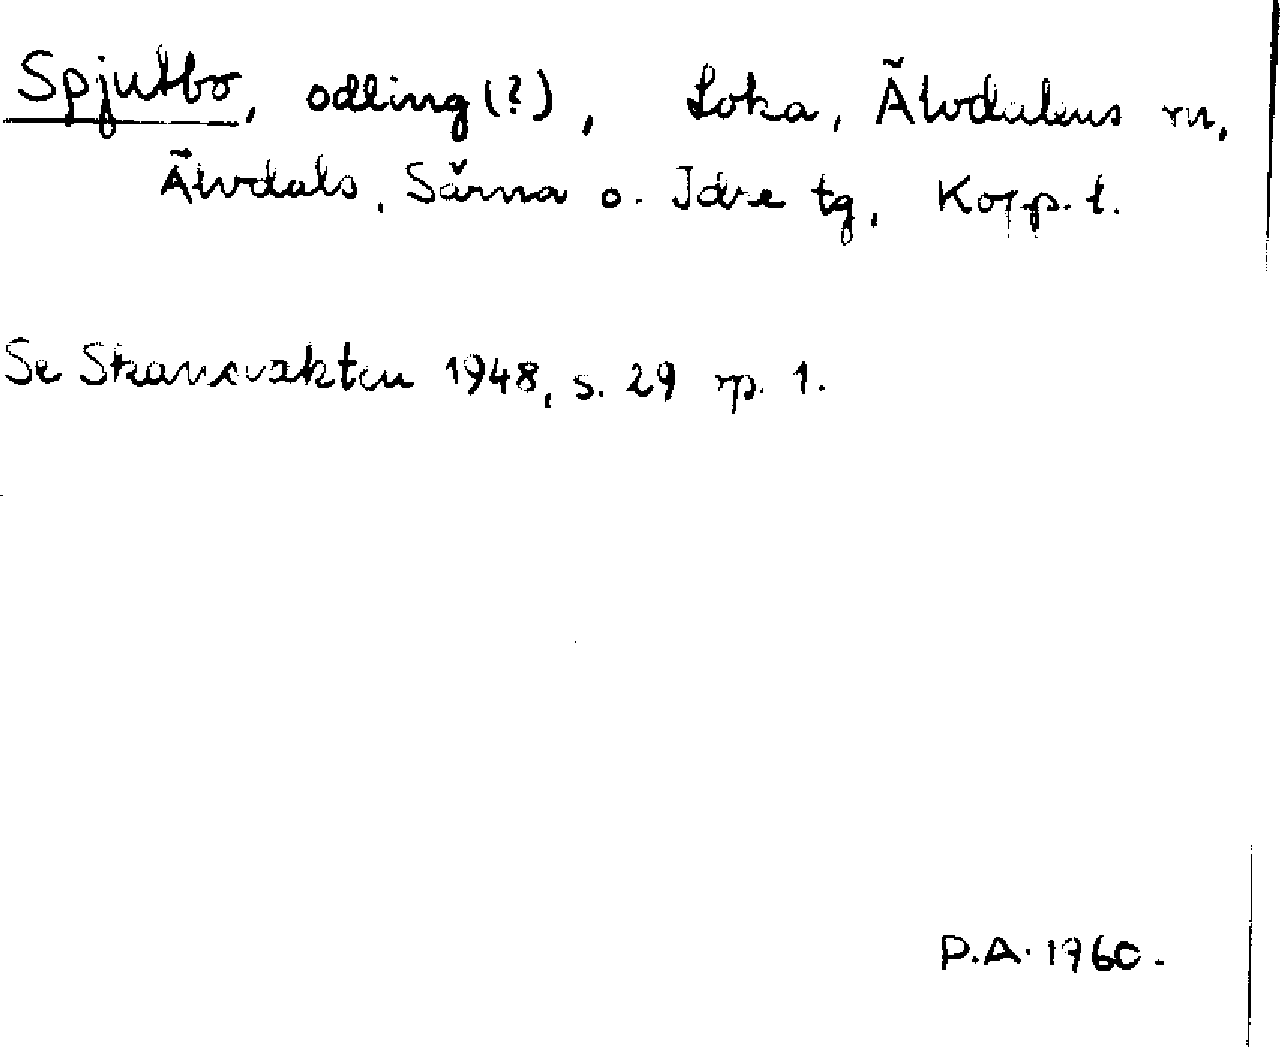 Spjutbo, odling (?), Loka, Älvdalens sn,
Älvdals, Särna o. Idre tg, Kopp. l.
Se Skansvakten 1948, s. 29 sp. 1.
P.A. 1960.